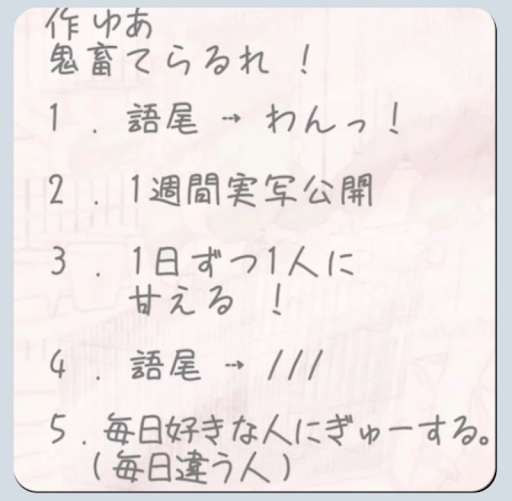 作 ゆあ
鬼畜てらるれ！
1．語尾 → わんっ！
2．1週間実写公開
3．1日ずつ1人に
甘える！
4．語尾 → ///
5．毎日好きな人にぎゅーする。
（毎日違う人）